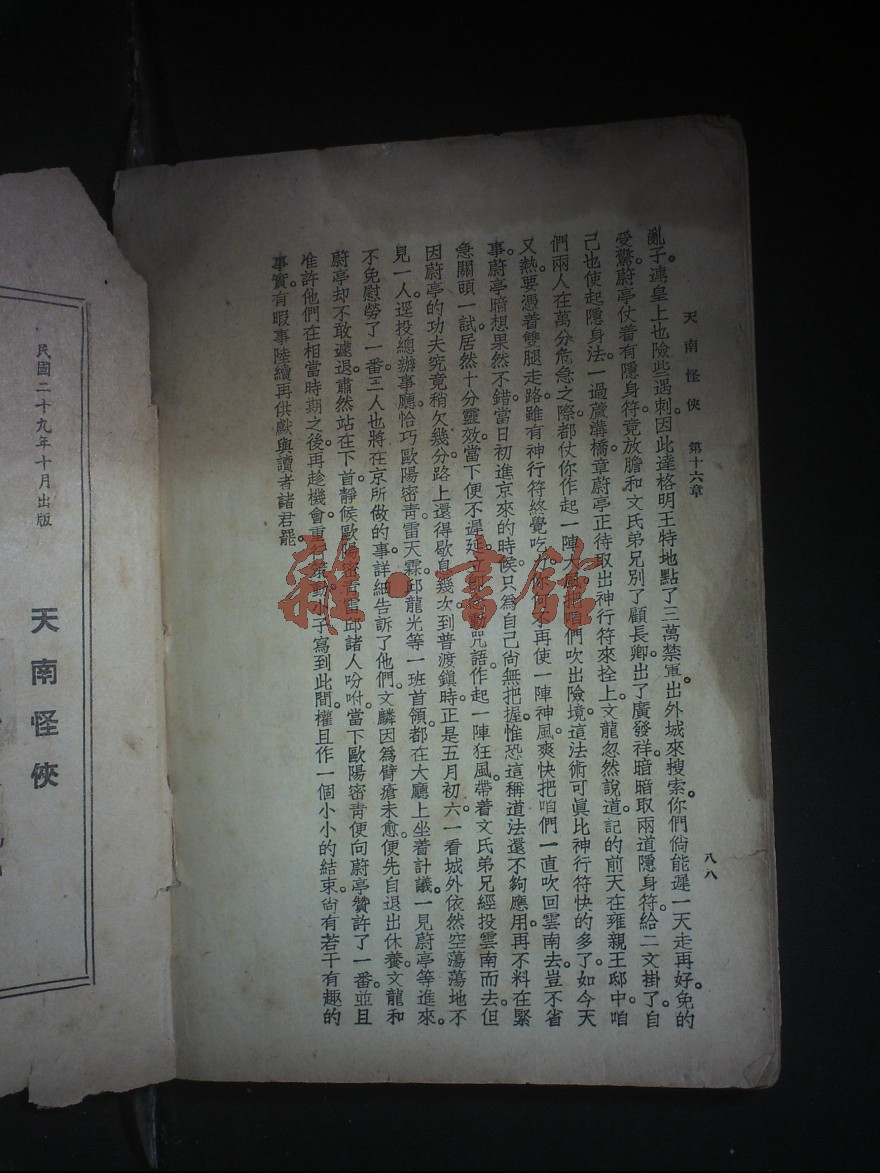 天南怪俠　第十六章
八八
亂子。連皇上也險些遇刺。因此達格明王特地點了三萬禁軍。出外城來搜索。你們倘能遲一天走再好。免的
受驚。蔚亭仗着有隱身符。竟放膽和文氏弟兄別了顧長卿。出了廣發祥。暗暗取兩道隱身符。給二文掛了。自
己也使起隱身法。一過蘆溝橋。章蔚亭正待取出神行符來拴上。文龍忽然說道。記的前天在雍親王邸中。咱
們兩人在萬分危急之際。都仗你作起一陣大風。把咱們吹出險境。這法術可眞比神行符快的多了。如今天
又熱。要憑着雙腿走路。雖有神行符。終覺吃力。你何不再使一陣神風。爽快把咱們一直吹回雲南去。豈不省
事。蔚亭暗想果然不錯。當日初進京來的時候。只爲自己尙無把握。惟恐這稱道法還不夠應用。再不料在緊
急關頭一試。居然十分靈效。當下便不遲延。立卽咒語。作起一陣狂風。帶着文氏弟兄。經投雲南而去。但
因蔚亭的功夫究竟稍欠幾分。路上還得歇息幾次。到普渡鎭時。正是五月初六。一看城外依然空蕩蕩地不
見一人。逕投總辦事廳。恰巧歐陽密靑雷天霖邱龍光等一班首領。都在大廳上坐着計議。一見蔚亭等進來。
不免慰勞了一番。三人也將在京所做的事。詳細告訴了他們。文麟因爲臂瘡未愈。便先自退出休養。文龍和
蔚亭却不敢遽退。肅然站在下首。靜候歐陽密靑雷邱諸人吩咐。當下歐陽密靑便向蔚亭贊許了一番。並且
准許他們在相當時期之後。再趁機會。重行策動。小子寫到此間。權且作一個小小的結束。尙有若干有趣的
事實。有暇事陸續再供獻與讀者諸君罷。
民國二十九年十月出版
天南怪俠
雜·書館